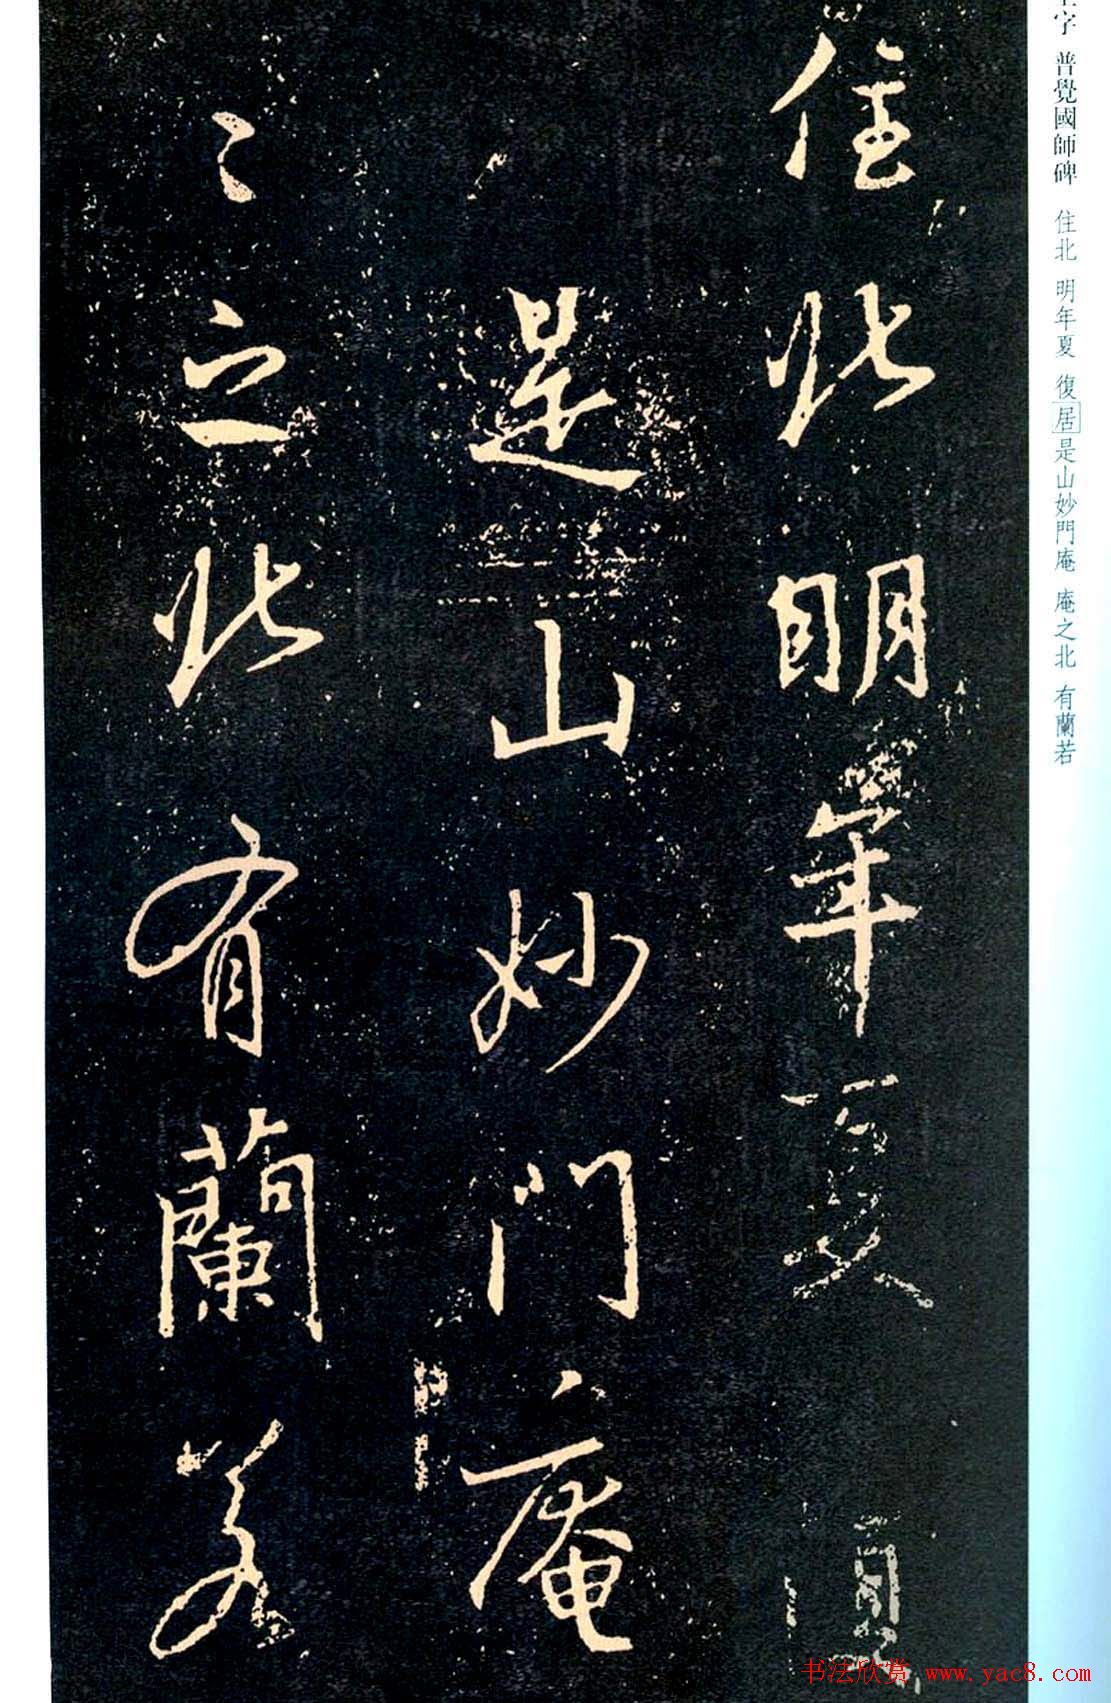 字 普覺國師碑 住北 明年夏 復居是山妙門庵 庵之北 有蘭若
住北明年夏復
是山妙門庵
〻之北有蘭若
书法欣赏 www.yac8.com